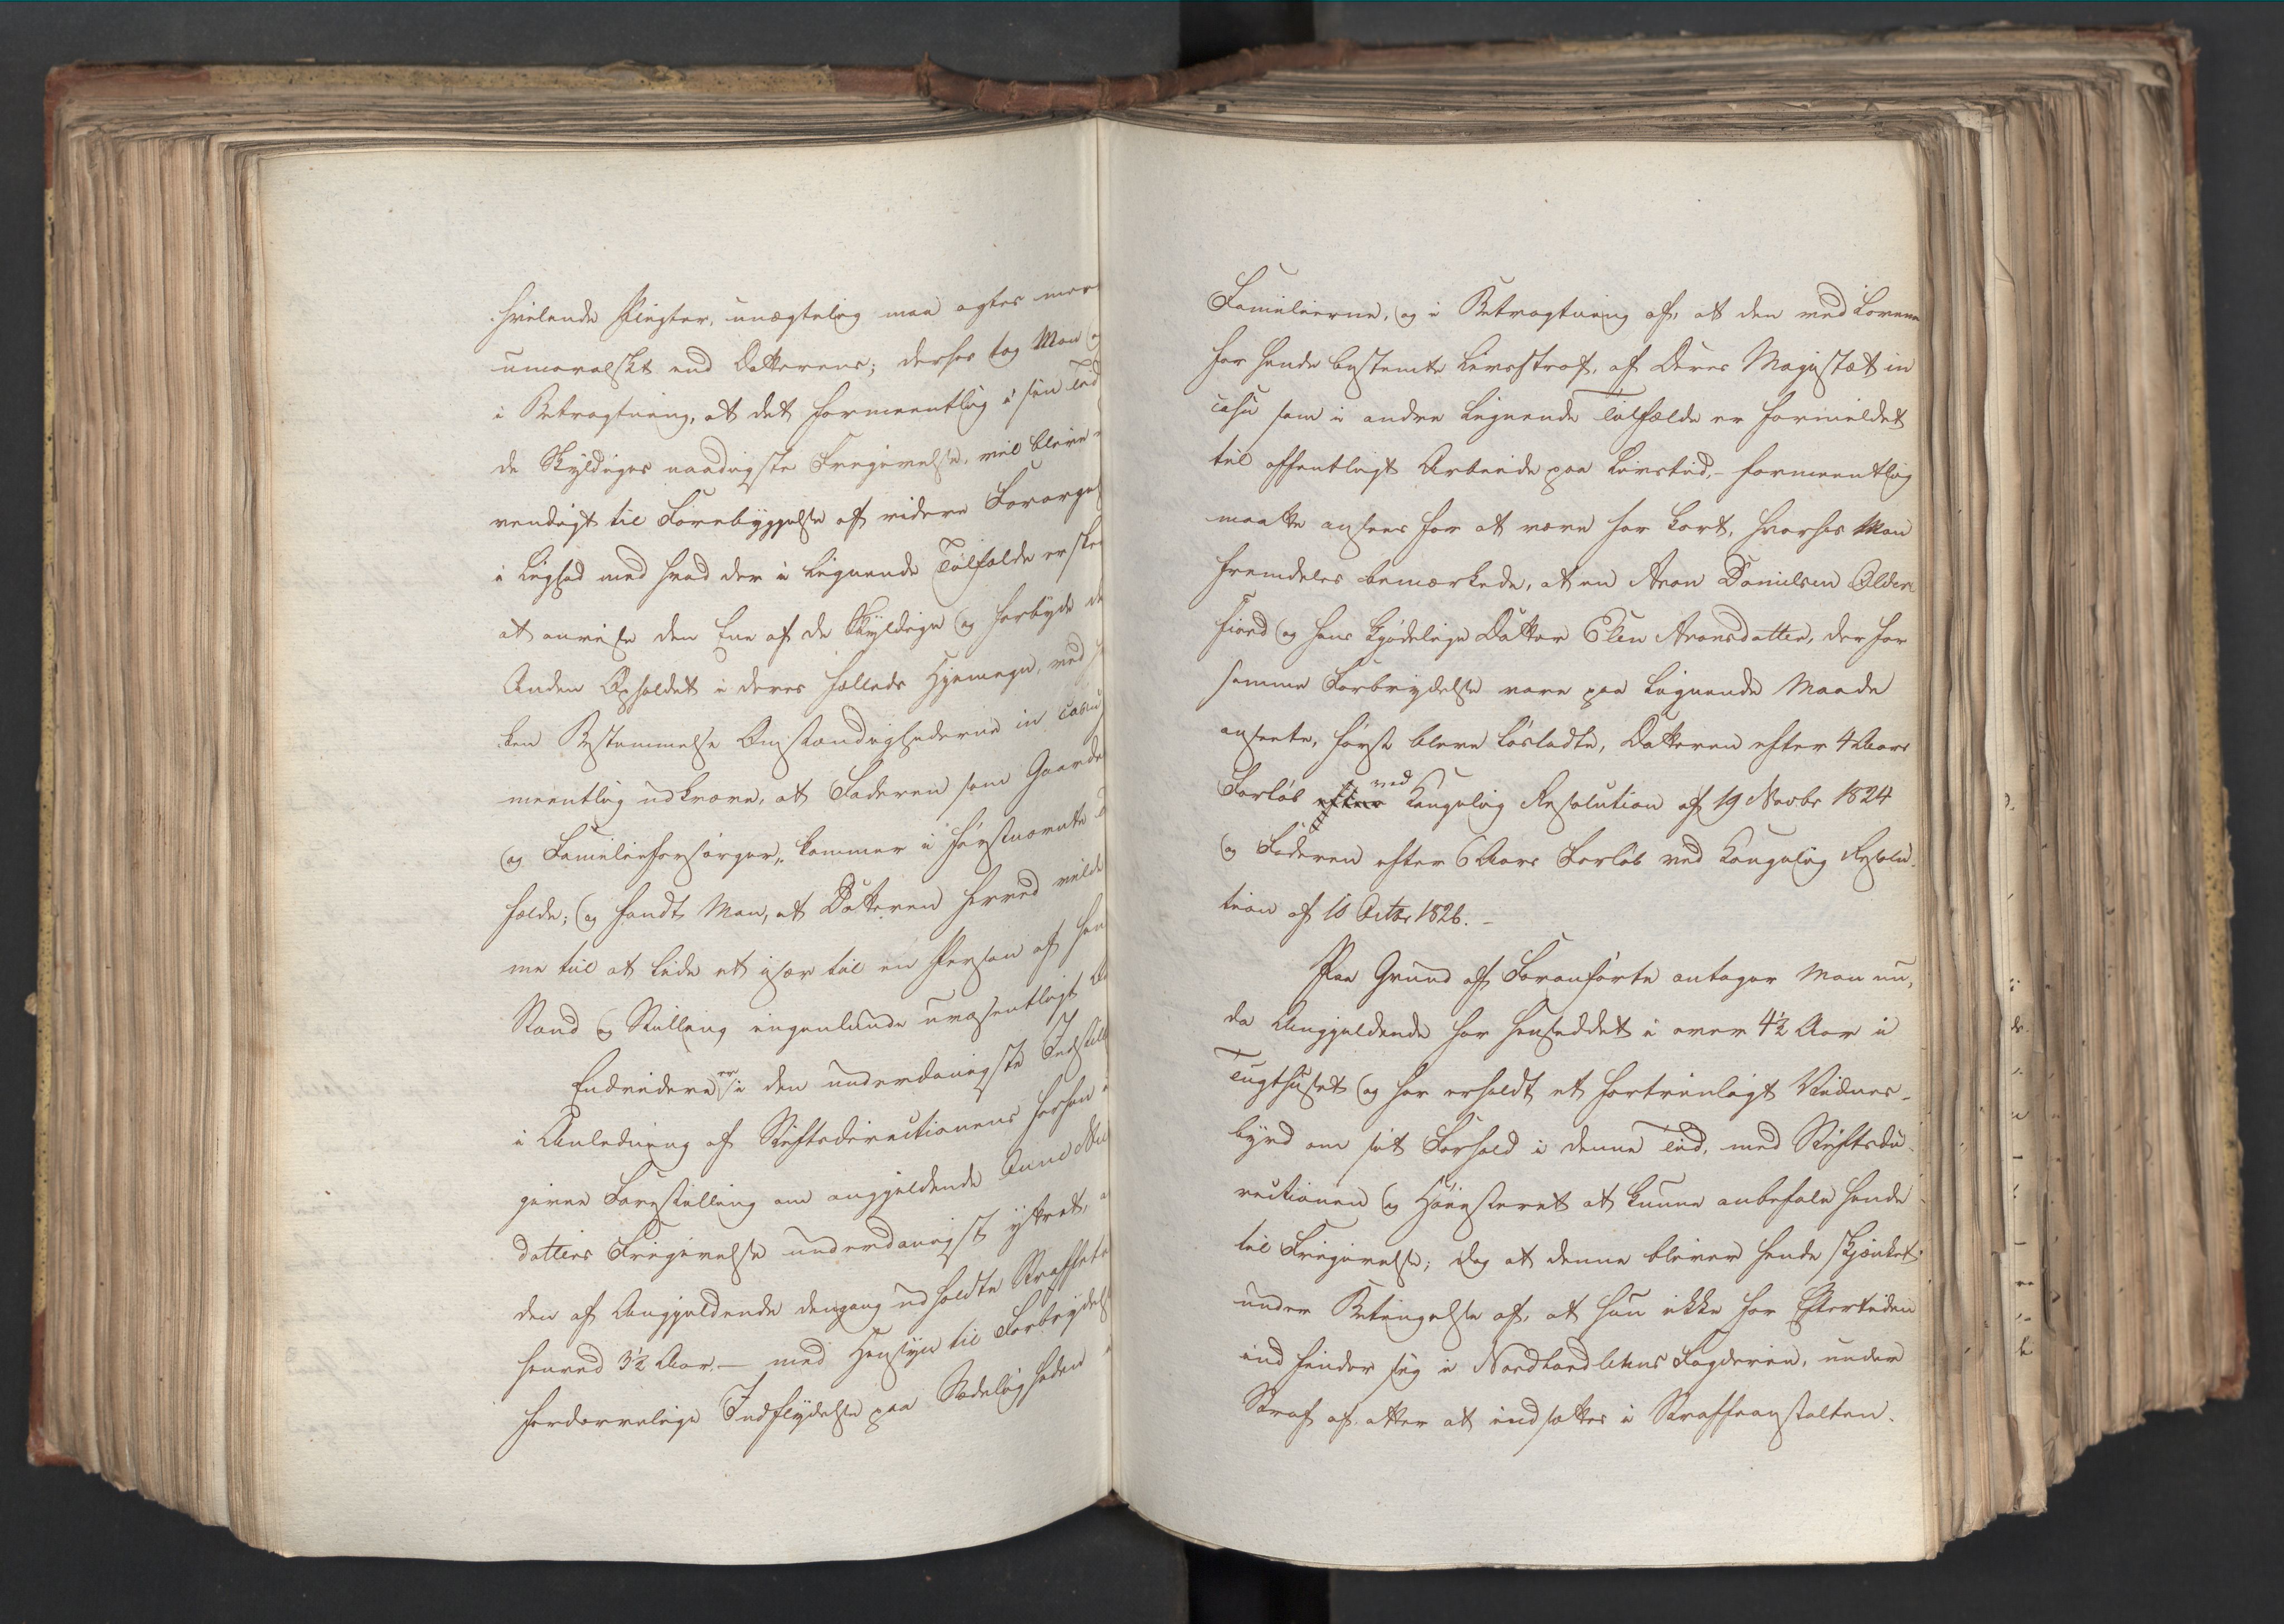 hvilende Pligter, unægtelig maa agtes mere
umoralskt end Datterens; derfor tog Man og
i Betragtning, at det formeentlig i sin Tid
de Skyldiges naadigste Frigivelse, vil blive
vendigt til Forebyggelse af videre Forargel
i Lighed med hvad der i lignende Tilfælde er skee
at anvise den Ene af de Skyldige og forbyde de
Anden Opholdet i deres fælleds Hjemegn, ved
ken Bestemmelse Omstændighederne in casu
meentlig udkræve, at Faderen som Gaard
og Familieforsørger, kommer i førstnævnte
fælde; og fandt Man, at Datteren herved vilde
me til at lide et især til en Person af hen
Stand og Stilling ingenlunde uvæsentligt
Endvidere er i den underdanigste Indstill
i Anledning af Stiftsdirectionens forhen
givne Forestilling om angjeldende Anne
datters Frigivelse underdanigst yttret,
den af Angjeldende dengang udholdte Straffeti
henved 3½ Aar — med Hensyn til Forbrydels
fordærvelige Indflydelse paa Sædeligheden
Familierne, og i Betragtning af, at den ved Lovene
for hende bestemte Livsstraf, af Deres Majestæt in
casu som i andre lignende Tilfælde er formildet
til offentligt Arbeide paa Livstid, - formeentlig
maatte ansees for at være for kort, hvorhos Man
fremdeles bemærkede, at en Aron Danielsen Older
fiord og hans kjødelige Datter Elen Aronsdatter, der for
samme Forbrydelse vare paa lignende Maade
ansete, først bleve løsladte, Datteren efter 4 Aars
Forløb efter ved Kongelig Resolution af 19 Novbr 1824
og Faderen efter 6 Aars Forløb ved Kongelig Resolu-
tion af 10 Octbr 1826. -
Paa Grund af Foranførte antager Man nu,
da Angjeldende har hensiddet i over 4½ Aar i
Tugthuset og har erholdt et fortrinligt Vidnes-
byrd om sit Forhold i denne Tid, med Stiftsdi-
rectionen og Høiesteret at kunne anbefale hende
til Frigivelse; dog at denne bliver hende skjænket
under Betingelse af, at hun ikke for Eftertiden
indfinder sig i Nordhordlehns Fogderie, under
Straf af atter at indsættes i Straffeanstalten.